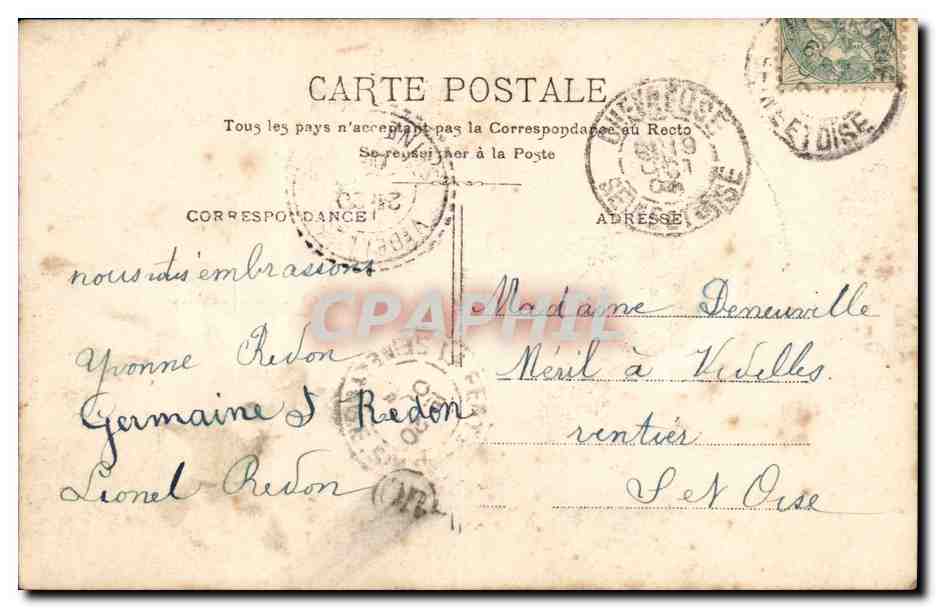 CARTE POSTALE
Tous les pays n'acceptent pas la Correspondance au Recto
Se renseigner à la Poste
CORRESPONDANCE
ADRESSE
CHEVREUSE
SEINE ET OISE
ET OISE
nous vous embrassons
Yvonne Redon
Germaine S Redon
Lionel Redon
Madame Deneuville
Méril à Videlles
rentier
S et Oise
CPAPHIL